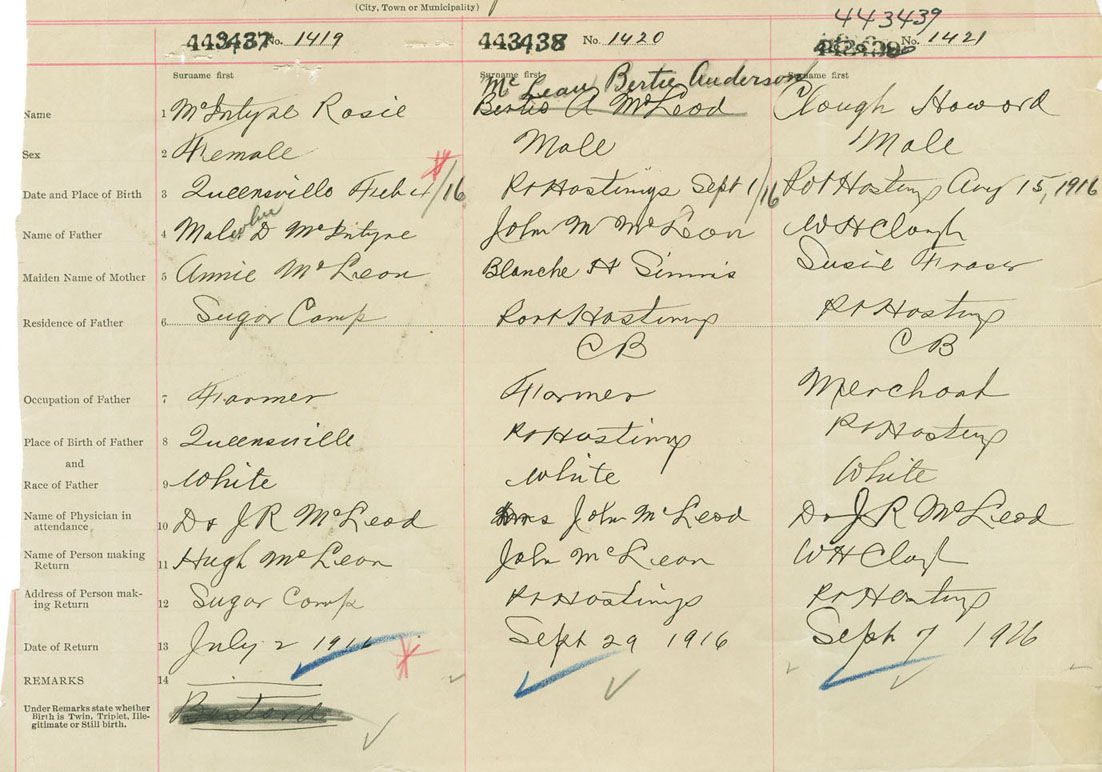 (City, Town or Municipality)
443437 No. 1419
443438 No. 1420
443439
No. 1421
Surname first
Surname first
Surname first
McLean Bertie Anderson
Name 1 McIntyre Rosie
Bertie A McLeod
Clough Howard
Sex 2 Female
Male
Male
Date and Place of Birth 3 Queensville Feb 4/16
Pt Hastings Sept 1/16
Pt Hastings Aug 15, 1916
Name of Father 4 Malcolm D McIntyre
John M McLean
W H Clough
Maiden Name of Mother 5 Annie McLean
Blanche H Simms
Susie Fraser
Residence of Father 6 Sugar Camp
Port Hastings
C B
Pt Hastings
C B
Occupation of Father 7 Farmer
Farmer
Merchant
Place of Birth of Father 8 Queensville
Pt Hastings
Pt Hastings
and
Race of Father 9 White
White
White
Name of Physician in
attendance 10 Dr J R McLeod
Mrs John McLeod
Dr J R McLeod
Name of Person making
Return 11 Hugh McLean
John McLean
W H Clough
Address of Person mak-
ing Return 12 Sugar Camp
Pt Hastings
Pt Hastings
Date of Return 13 July 2 1916
Sept 29 1916
Sept 7 1926
REMARKS 14
Under Remarks state whether
Birth is Twin, Triplet, Ille-
gitimate or Still birth.